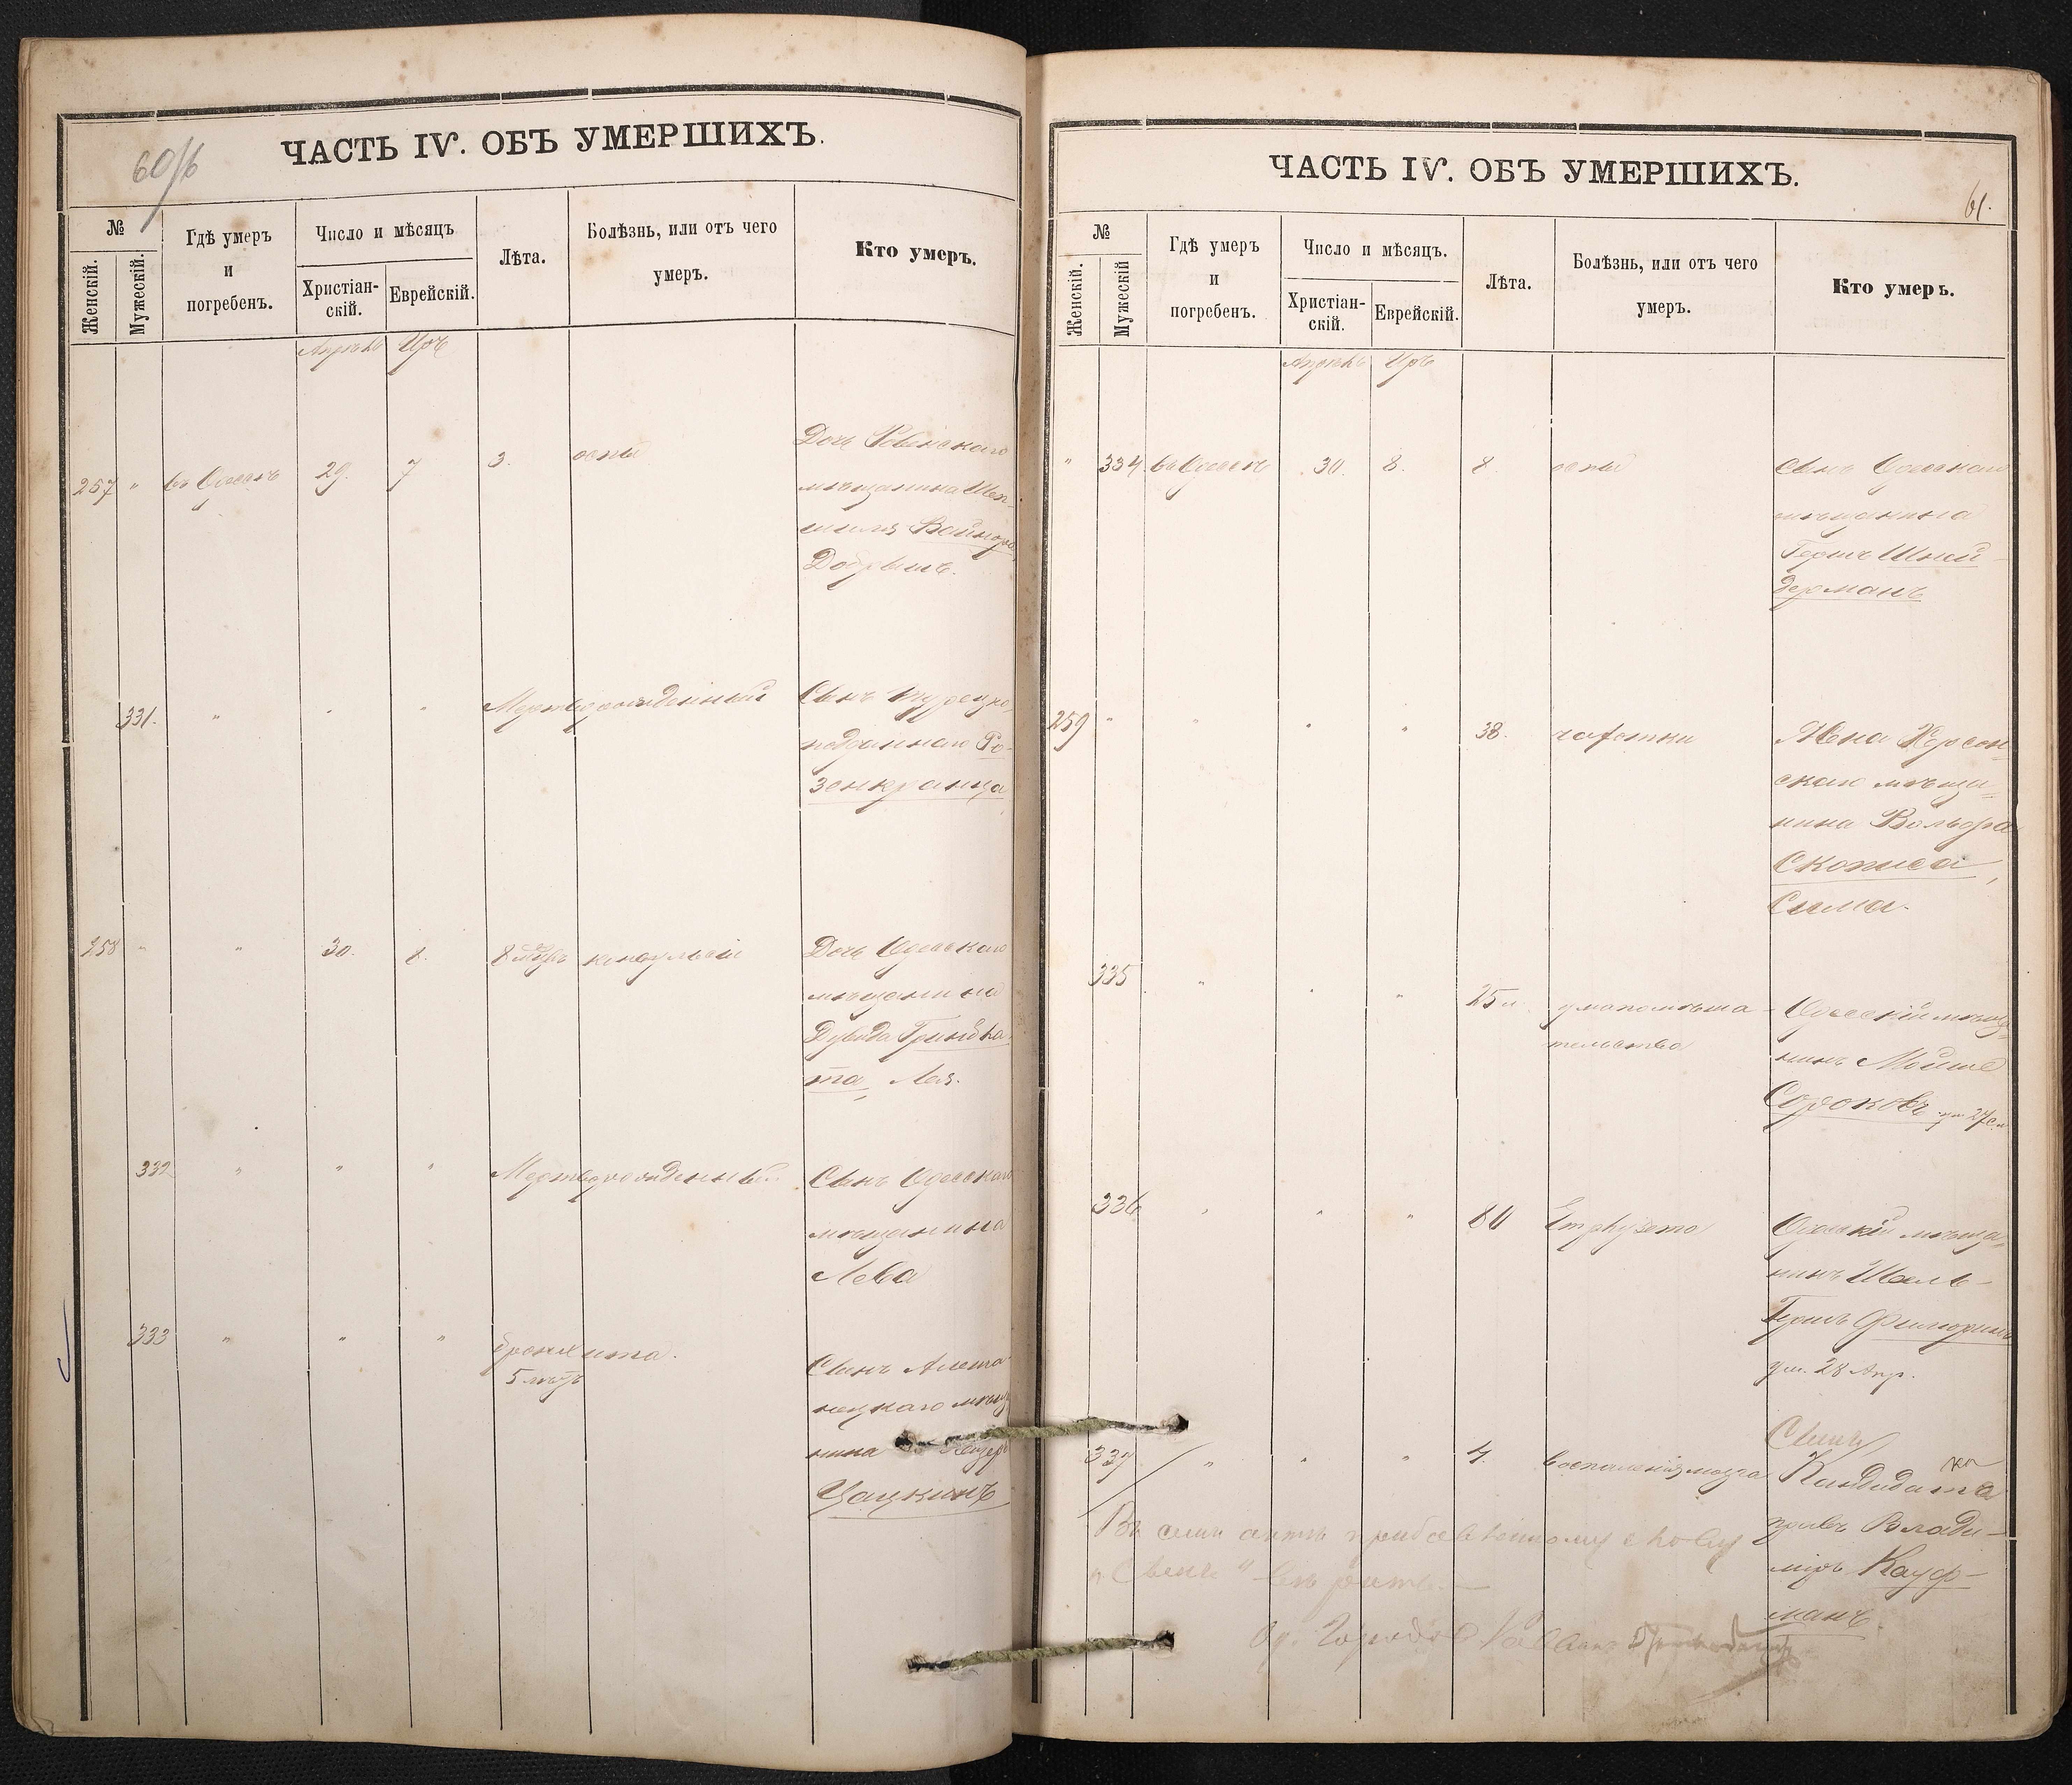 60/6
ЧАСТЬ IV. ОБЪ УМЕРШИХЪ.
№
Женскій.
Мужескій.
Гдѣ умеръ
и
погребенъ.
Число и мѣсяцъ
Христіан-
скій.
Еврейскій.
Лѣта.
Болѣзнь, или отъ чего
умеръ.
Кто умеръ.
Апрѣль Иръ
257 " въ Одессѣ 29. 7 3. оспы
Дочь Ровенскаго
мѣщанина
Вайнора
Добрышъ.
331. " " " Мертворожденный
Сынъ Турецко
подданнаго Ро-
зенкранца
258 " " 30. 8. 8 мѣсъ конвульсіи
Дочь Одесскаго
мѣщанина
Дувида Гринбла-
та, Лея.
332 " " " Мертворожденный.
Сынъ Одесскаго
мѣщанина
Лева
333 " " " бронхита.
5 мѣсъ
Сынъ
мѣщ
нина
Цацкинъ
ЧАСТЬ IV. ОБЪ УМЕРШИХЪ.
61.
№
Женскій.
Мужескій
Гдѣ умеръ
и
погребенъ.
Число и мѣсяцъ.
Христіан-
скій.
Еврейскій.
Лѣта.
Болѣзнь, или отъ чего
умеръ.
Кто умеръ.
Апрѣль Иръ
" 334 въ Одессѣ 30. 8. 8. оспы
Сынъ Одесскаго
мѣщанина
Гершъ Шней-
дерманъ
259 " " " " 38. чахотки
Жена Херсон-
скаго мѣща=
нина Вольфа
Скописа,
Сима.
335 " " " 25 л. умопомѣша-
тельства
Одесскій мѣща
нинъ Мойше
Сороковъ ум 27 с.м
336 " " " 60 Emphysema
Одесскій мѣща=
нинъ Шель-
ум. 28 Апр.
337 " " " 4. воспаленія мозга
Сынъ
Кандидата
правъ Влади-
міръ Кауф-
манъ.
Въ семъ актѣ прибавленному слову
"Сынъ" вѣрить.—
Од. Городов. Раввинъ